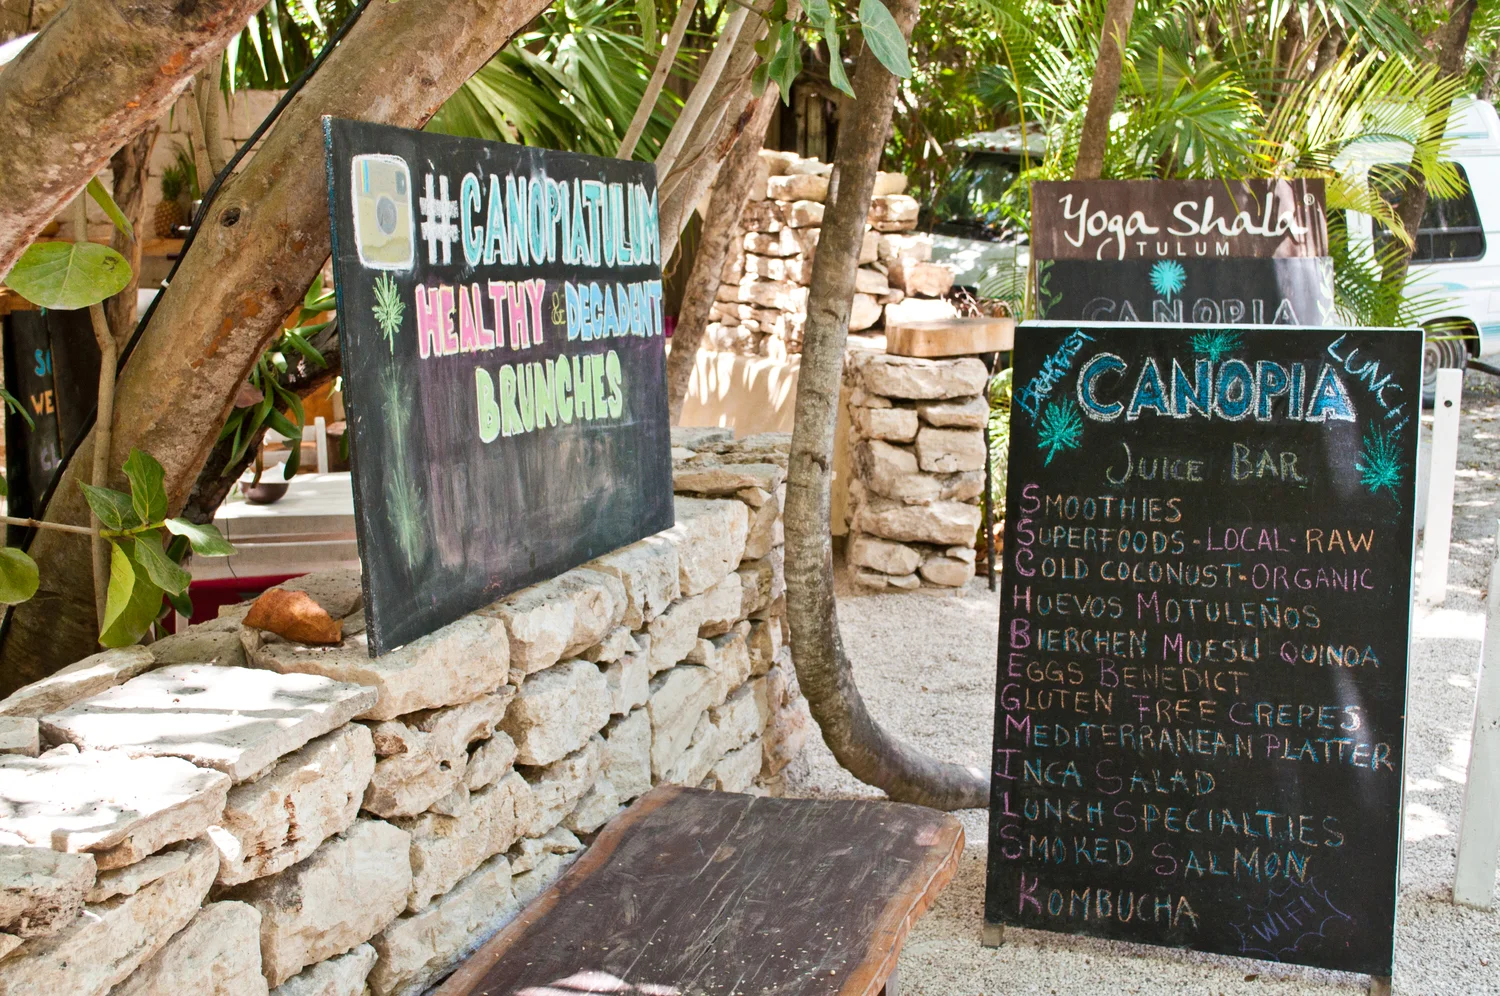 #CANOPIATULUM
HEALTHY & DECADENT
BRUNCHES
WE
Yoga Shala®
TULUM
CANOPIA
BREAKFAST
CANOPIA
LUNCH
JUICE BAR
SMOOTHIES
SUPERFOODS-LOCAL-RAW
COLD COCONUST-ORGANIC
HUEVOS MOTULEÑOS
BIERCHEN MUESLI QUINOA
EGGS BENEDICT
GLUTEN FREE CREPES
MEDITERRANEAN PLATTER
INCA SALAD
LUNCH SPECIALTIES
SMOKED SALMON
KOMBUCHA
WIFI